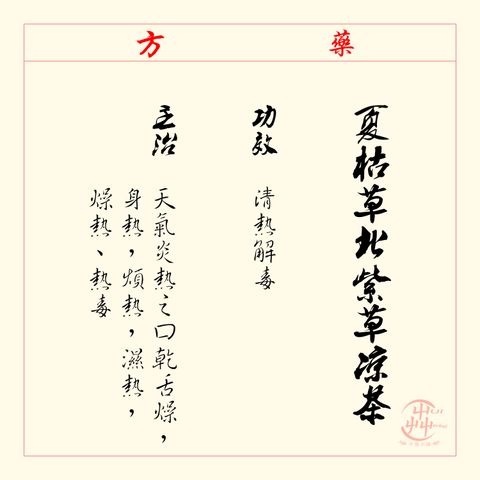 藥方
夏枯草北紫草涼茶
功效
清熱解毒
主治
天氣炎熱之口乾舌燥，
身熱，煩熱，濕熱，
燥熱、熱毒